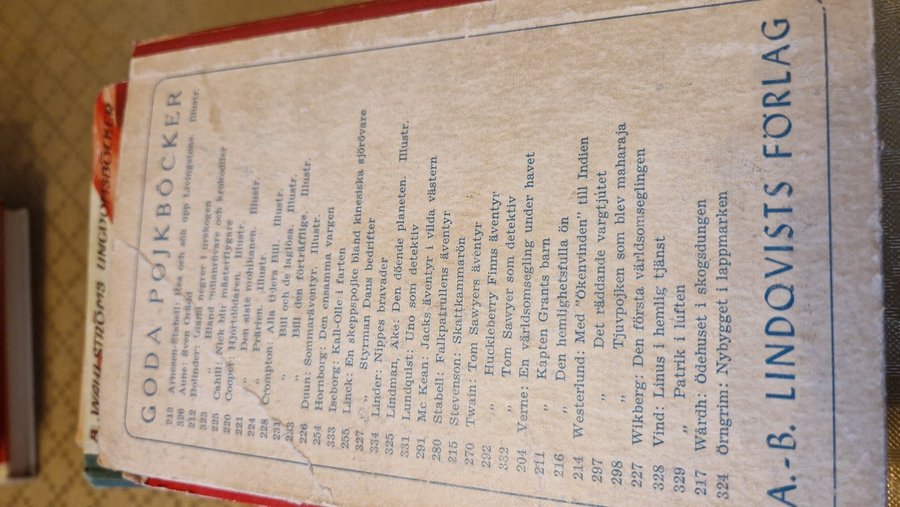 WAHLSTRÖMS UNGDOMSBÖCKER
GODA POJKBÖCKER
213 Arnesen-Stabell: Res och sök upp Livingstone. Illustr.
326 Anne: Sven Orädd
212 Bolinder: negrer i urskogen
323 „ Bland och krokodiler
225 Cahill: Nick blir mästerflygare
220 Cooper: Hjortdödaren. Illustr.
221 „ Den siste mohikanen. Illustr.
224 „ Prärien. Illustr.
228 Crompton: Alla tiders Bill. Illustr.
231 „ Bill och de laglösa. Illustr.
233 „ Bill den förträfflige. Illustr.
226 Duun: Sommaräventyr. Illustr.
254 Hornborg: Den ensamma vargen
333 Iseborg: Kall-Olle i farten
255 Linck: En skeppspojke bland kinesiska sjörövare
327 „ Styrman Dans bedrifter
334 Linder: Nippes bravader
325 Lindman, Åke: Den döende planeten. Illustr.
331 Lundquist: Uno som detektiv
291 Mc Kean: Jacks äventyr i vilda västern
280 Stabell: Falkpatrullens äventyr
215 Stevenson: Skattkammarön
270 Twain: Tom Sawyers äventyr
292 „ Huckleberry Finns äventyr
332 „ Tom Sawyer som detektiv
204 Verne: En världsomsegling under havet
211 „ Kapten Grants barn
216 „ Den hemlighetsfulla ön
214 Westerlund: Med "Ökenvinden" till Indien
297 „ Det räddande vargtjutet
298 „ Tjuvpojken som blev maharaja
227 Wikberg: Den första världsomseglingen
328 Vind: Linus i hemlig tjänst
329 „ Patrik i luften
217 Wårdh: Ödehuset i skogsdungen
324 Örngrim: Nybygget i lappmarken
A.-B. LINDQVISTS FÖRLAG